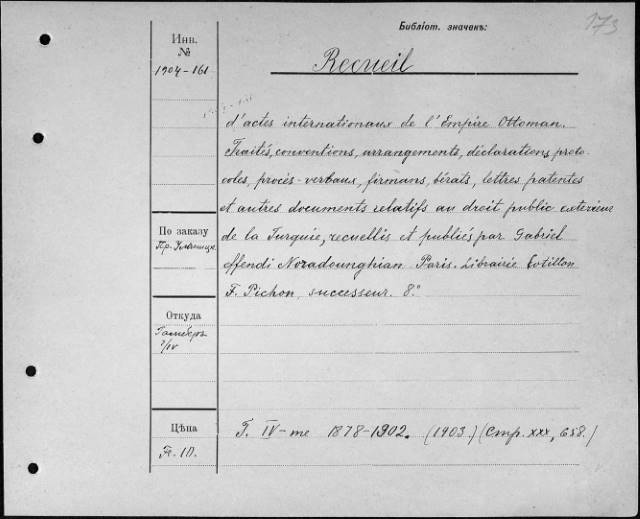 Библіот. значекъ:
173
Инв.
№
1904-161
Recueil
d'actes internationaux de l'Empire Ottoman.
Traités, conventions, arrangements, déclarations, proto-
coles, procès-verbaux, firmans, bérats, lettres patentes
et autres documents relatifs au droit public exterieur
de la Turquie, recuellis et publiés par Gabriel
effendi Noradounghian Paris. Librairie Cotillon
F. Pichon, successeur. 8.º
По заказу
Пр.
Откуда
Гамберъ
7/IV
Цѣна
Fr. 10.
T. IV-me 1878-1902. (1903.) (Стр. XXX, 658.)